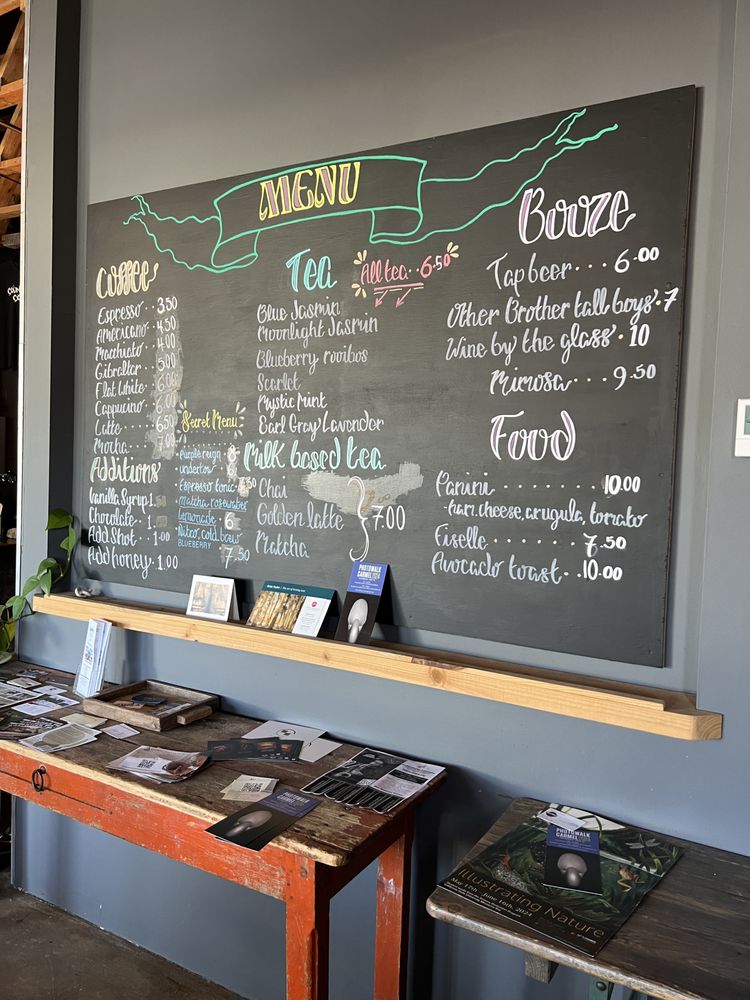 MENU
Coffee
Espresso · 3.50
Americano · 4.50
Macchiato · 4.00
Gibraltar · 5.00
Flat White · 6.00
Cappucino · 6.00
Latte · · 6.50
Mocha · · 7.00
Additions
Vanilla Syrup 1.
Chocolate · 1.
Add Shot · 1.00
Add honey · 1.00
Secret Menu
Purple reign
undertow
Espresso tonic · 7.50
Matcha rosewater
Lemonade 6
Nitro, cold brew
BLUEBERRY 7.50
Tea
All tea · · 6.50
Blue Jasmin
Moonlight Jasmin
Blueberry rooibos
Scarlet
Mystic Mint
Earl Gray Lavender
Milk based tea
Chai
Golden latte 7.00
Matcha
Booze
Tap beer · · · · 6.00
Other Brother tall boys · 7
Wine by the glass · · 10
Mimosa · · · · 9.50
Food
Panini · · · · · · · · · 10.00
-ham, cheese, arugula, tomato
Eiselle · · · · · · · 7.50
Avocado toast · · 10.00
PHOTOWALK
CARMEL 2024
PHOTOWALK
CARMEL
PHOTOWALK
CARMEL
Illustrating Nature
May 17th - June 16th, 2024